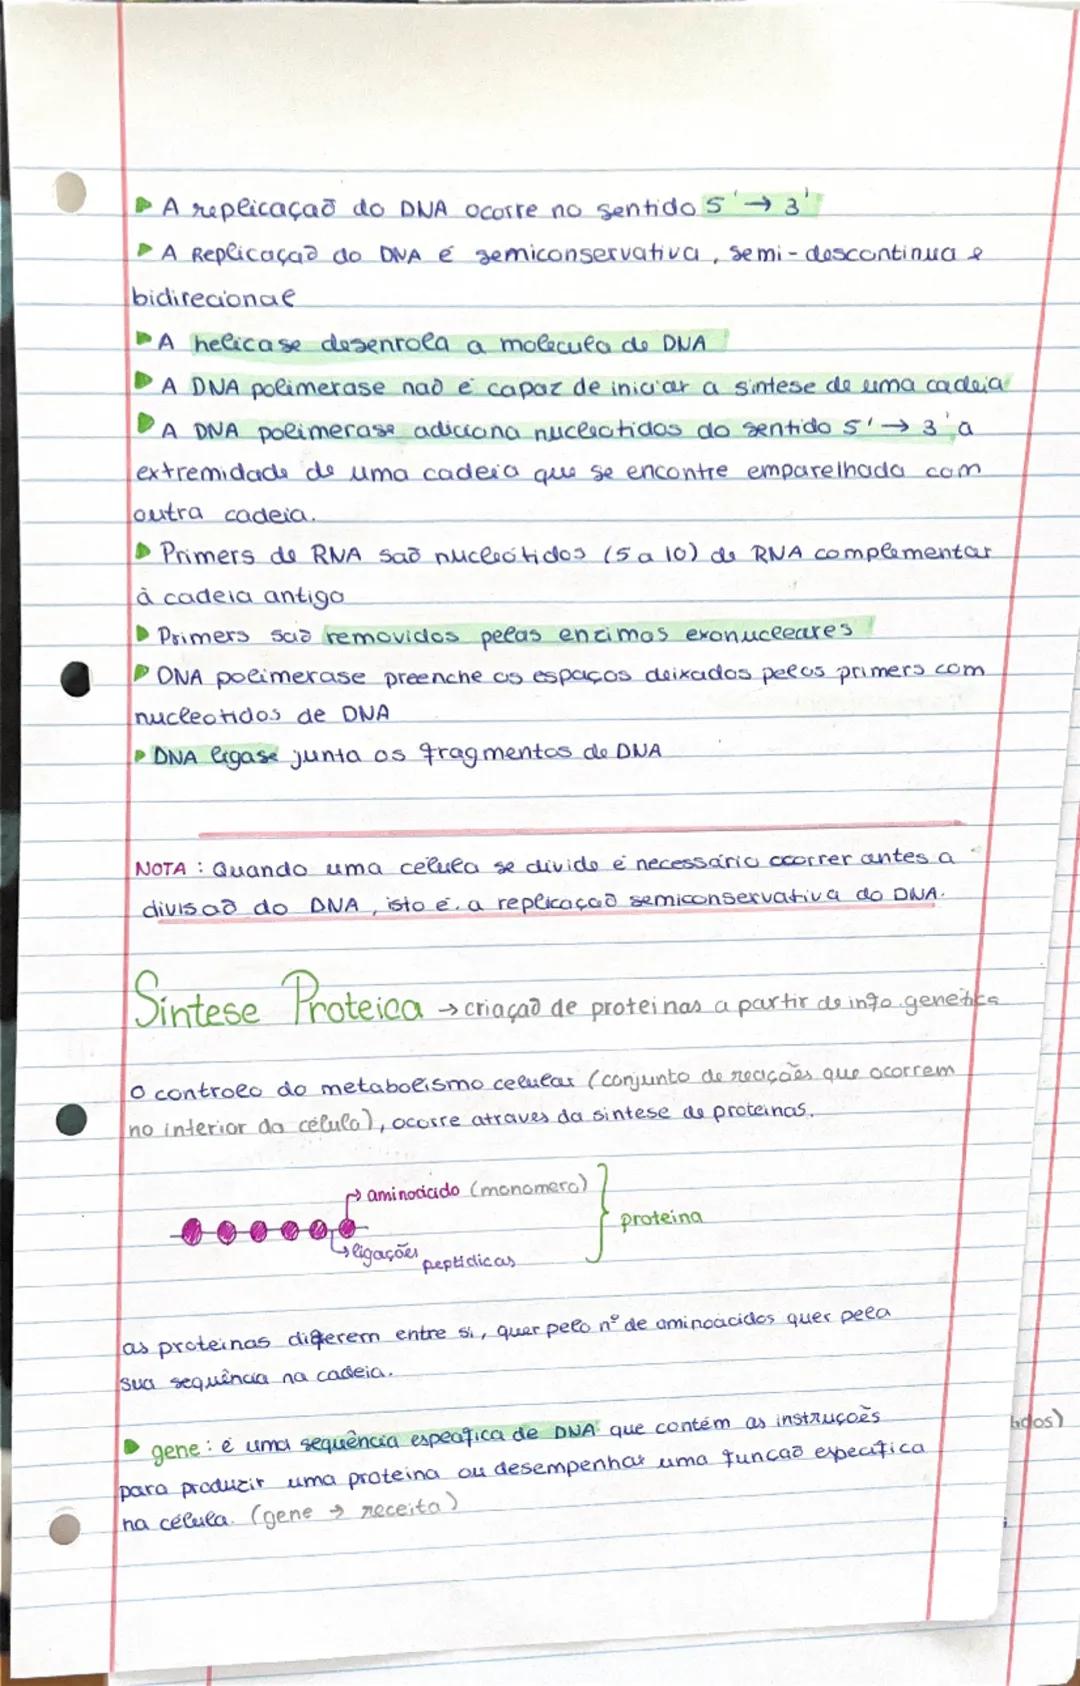 ▶ A replicação do DNA ocorre no sentido 5' → 3'
▶ A Replicação do DNA é semiconservativa, semi-descontinua e
bidirecional
▶ A helicase desenrola a molecula de DNA
▶ A DNA polimerase não é capaz de iniciar a sintese de uma cadeia
▶ A DNA polimerase adiciona nucleotidos do sentido 5' → 3' a
extremidade de uma cadeia que se encontre emparelhada com
outra cadeia.
▶ Primers de RNA são nucleótidos (5 a 10) de RNA complementar
à cadeia antiga
▶ Primers são removidos pelas enzimas exonucleares
▶ DNA polimerase preenche os espaços deixados pelos primers com
nucleotidos de DNA
▶ DNA ligase junta os fragmentos de DNA
NOTA : Quando uma celula se divide é necessário ocorrer antes a
divisão do DNA, isto é. a replicação semiconservativa do DNA.
Síntese Proteica → criação de proteinas a partir de info genetica
O controlo do metabolismo celular (conjunto de reações que ocorrem
no interior da célula), ocorre atraves da sintese de proteinas.
→ aminoácido (monomero)
proteina
↳ ligações
peptidicas
as proteinas diferem entre si, quer pelo nº de aminoácidos quer pela
sua sequência na cadeia.
▶ gene : é uma sequência especifica de DNA que contém as instruções
para produzir uma proteina ou desempenhar uma função especifica
na célula. (gene → receita)